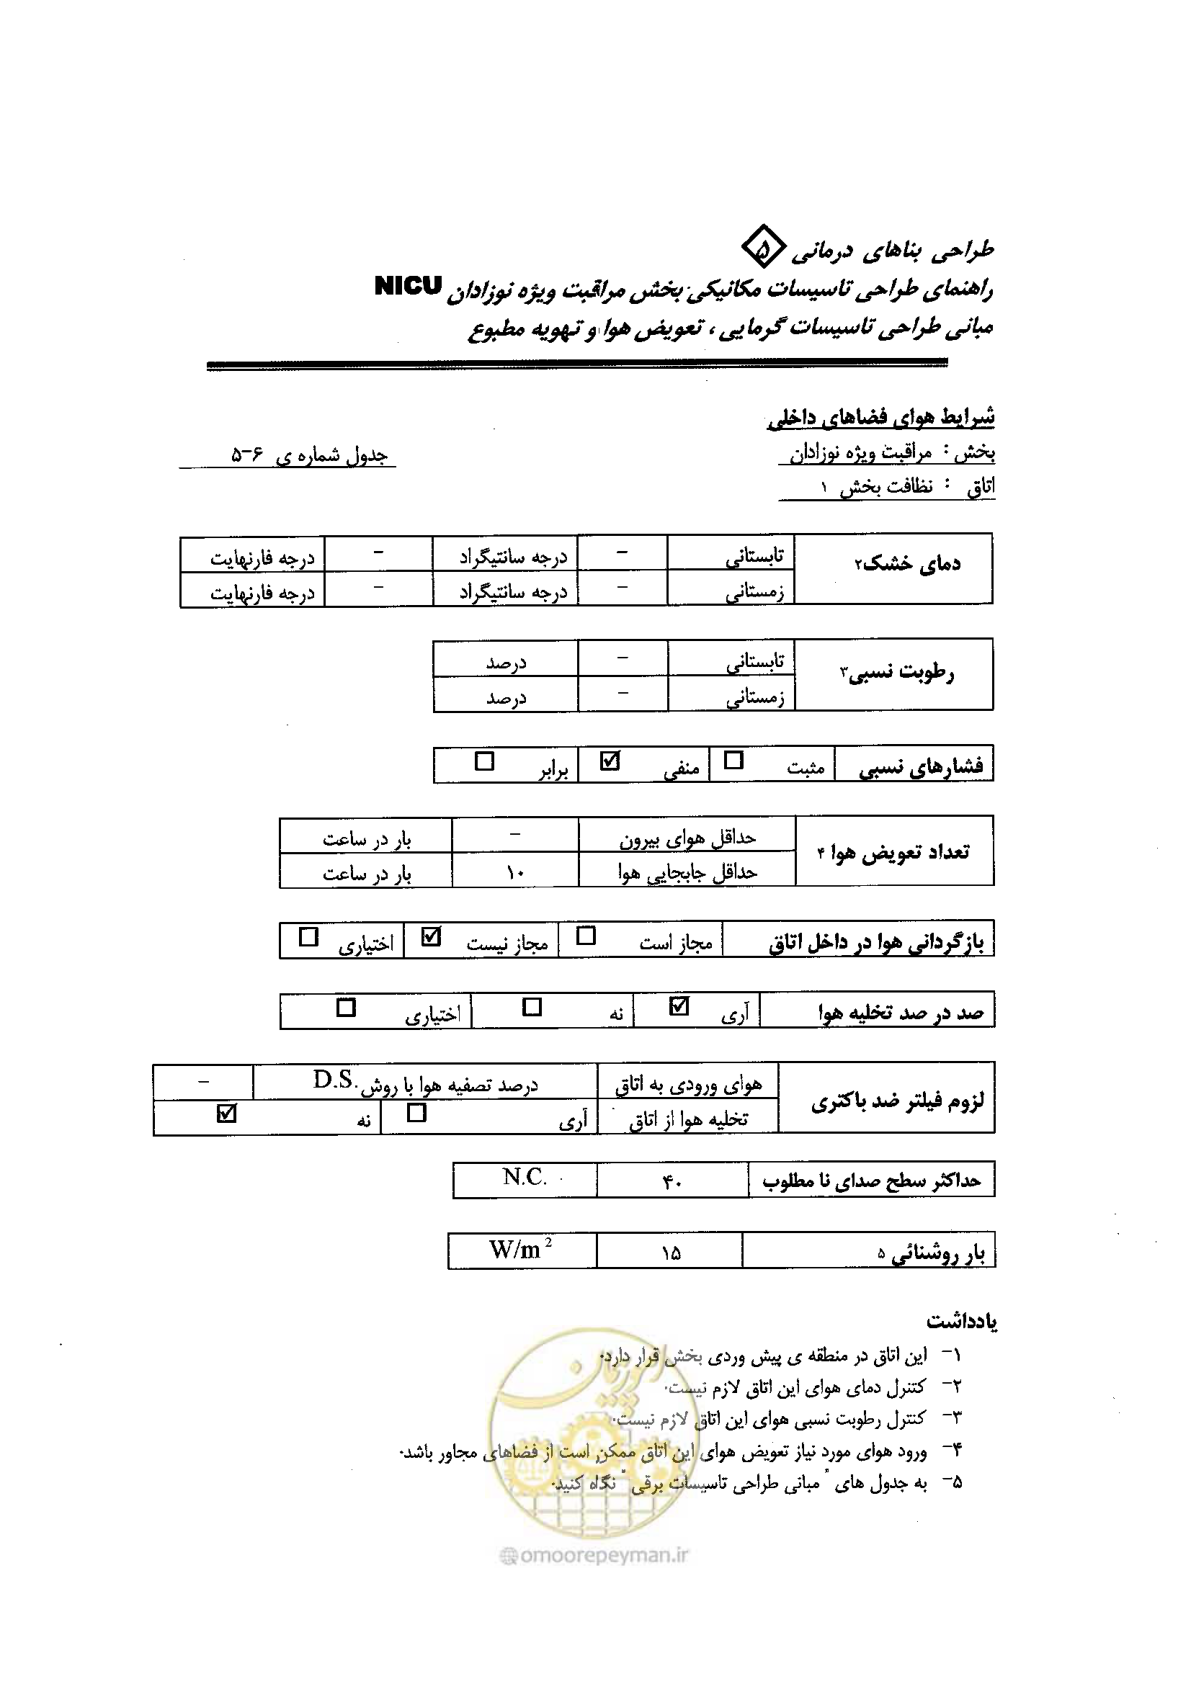 طراحی بناهای درمانی ۵
راهنمای طراحی تاسیسات مکانیکی بخش مراقبت ویژه نوزادان NICU
مبانی طراحی تاسیسات گرمایی ، تعویض هوا و تهویه مطبوع
شرایط هوای فضاهای داخلی
بخش : مراقبت ویژه نوزادان
جدول شماره ی ۶-۵
اتاق : نظافت بخش ۱
دمای خشک۲
تابستانی – درجه سانتیگراد – درجه فارنهایت
زمستانی – درجه سانتیگراد – درجه فارنهایت
رطوبت نسبی۳
تابستانی – درصد
زمستانی – درصد
فشارهای نسبی مثبت ☐ منفی ☑ برابر ☐
تعداد تعویض هوا ۴
حداقل هوای بیرون – بار در ساعت
حداقل جابجایی هوا ۱۰ بار در ساعت
بازگردانی هوا در داخل اتاق مجاز است ☐ مجاز نیست ☑ اختیاری ☐
صد در صد تخلیه هوا آری ☑ نه ☐ اختیاری ☐
لزوم فیلتر ضد باکتری
هوای ورودی به اتاق درصد تصفیه هوا با روش D.S. –
تخلیه هوا از اتاق آری ☐ نه ☑
حداکثر سطح صدای نا مطلوب ۴۰ N.C.
بار روشنائی ۵ ۱۵ W/m²
یادداشت
۱– این اتاق در منطقه ی پیش وردی بخش قرار دارد.
۲– کنترل دمای هوای این اتاق لازم نیست.
۳– کنترل رطوبت نسبی هوای این اتاق لازم نیست.
۴– ورود هوای مورد نیاز تعویض هوای این اتاق ممکن است از فضاهای مجاور باشد.
۵– به جدول های "مبانی طراحی تاسیسات برقی" نگاه کنید.
امور پیمان
@omoorepeyman.ir